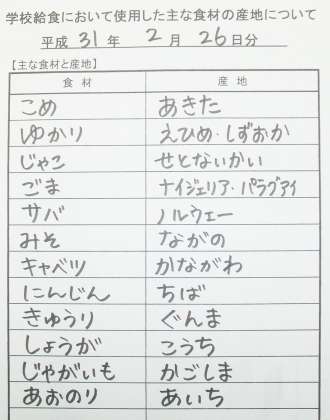 学校給食において使用した主な食材の産地について
平成31年2月26日分
【主な食材と産地】
食材 産地
こめ あきた
ゆかり えひめ・しずおか
じゃこ せとないかい
ごま ナイジェリア・パラグアイ
サバ ノルウェー
みそ ながの
キャベツ かながわ
にんじん ちば
きゅうり ぐんま
しょうが こうち
じゃがいも かごしま
あおのり あいち